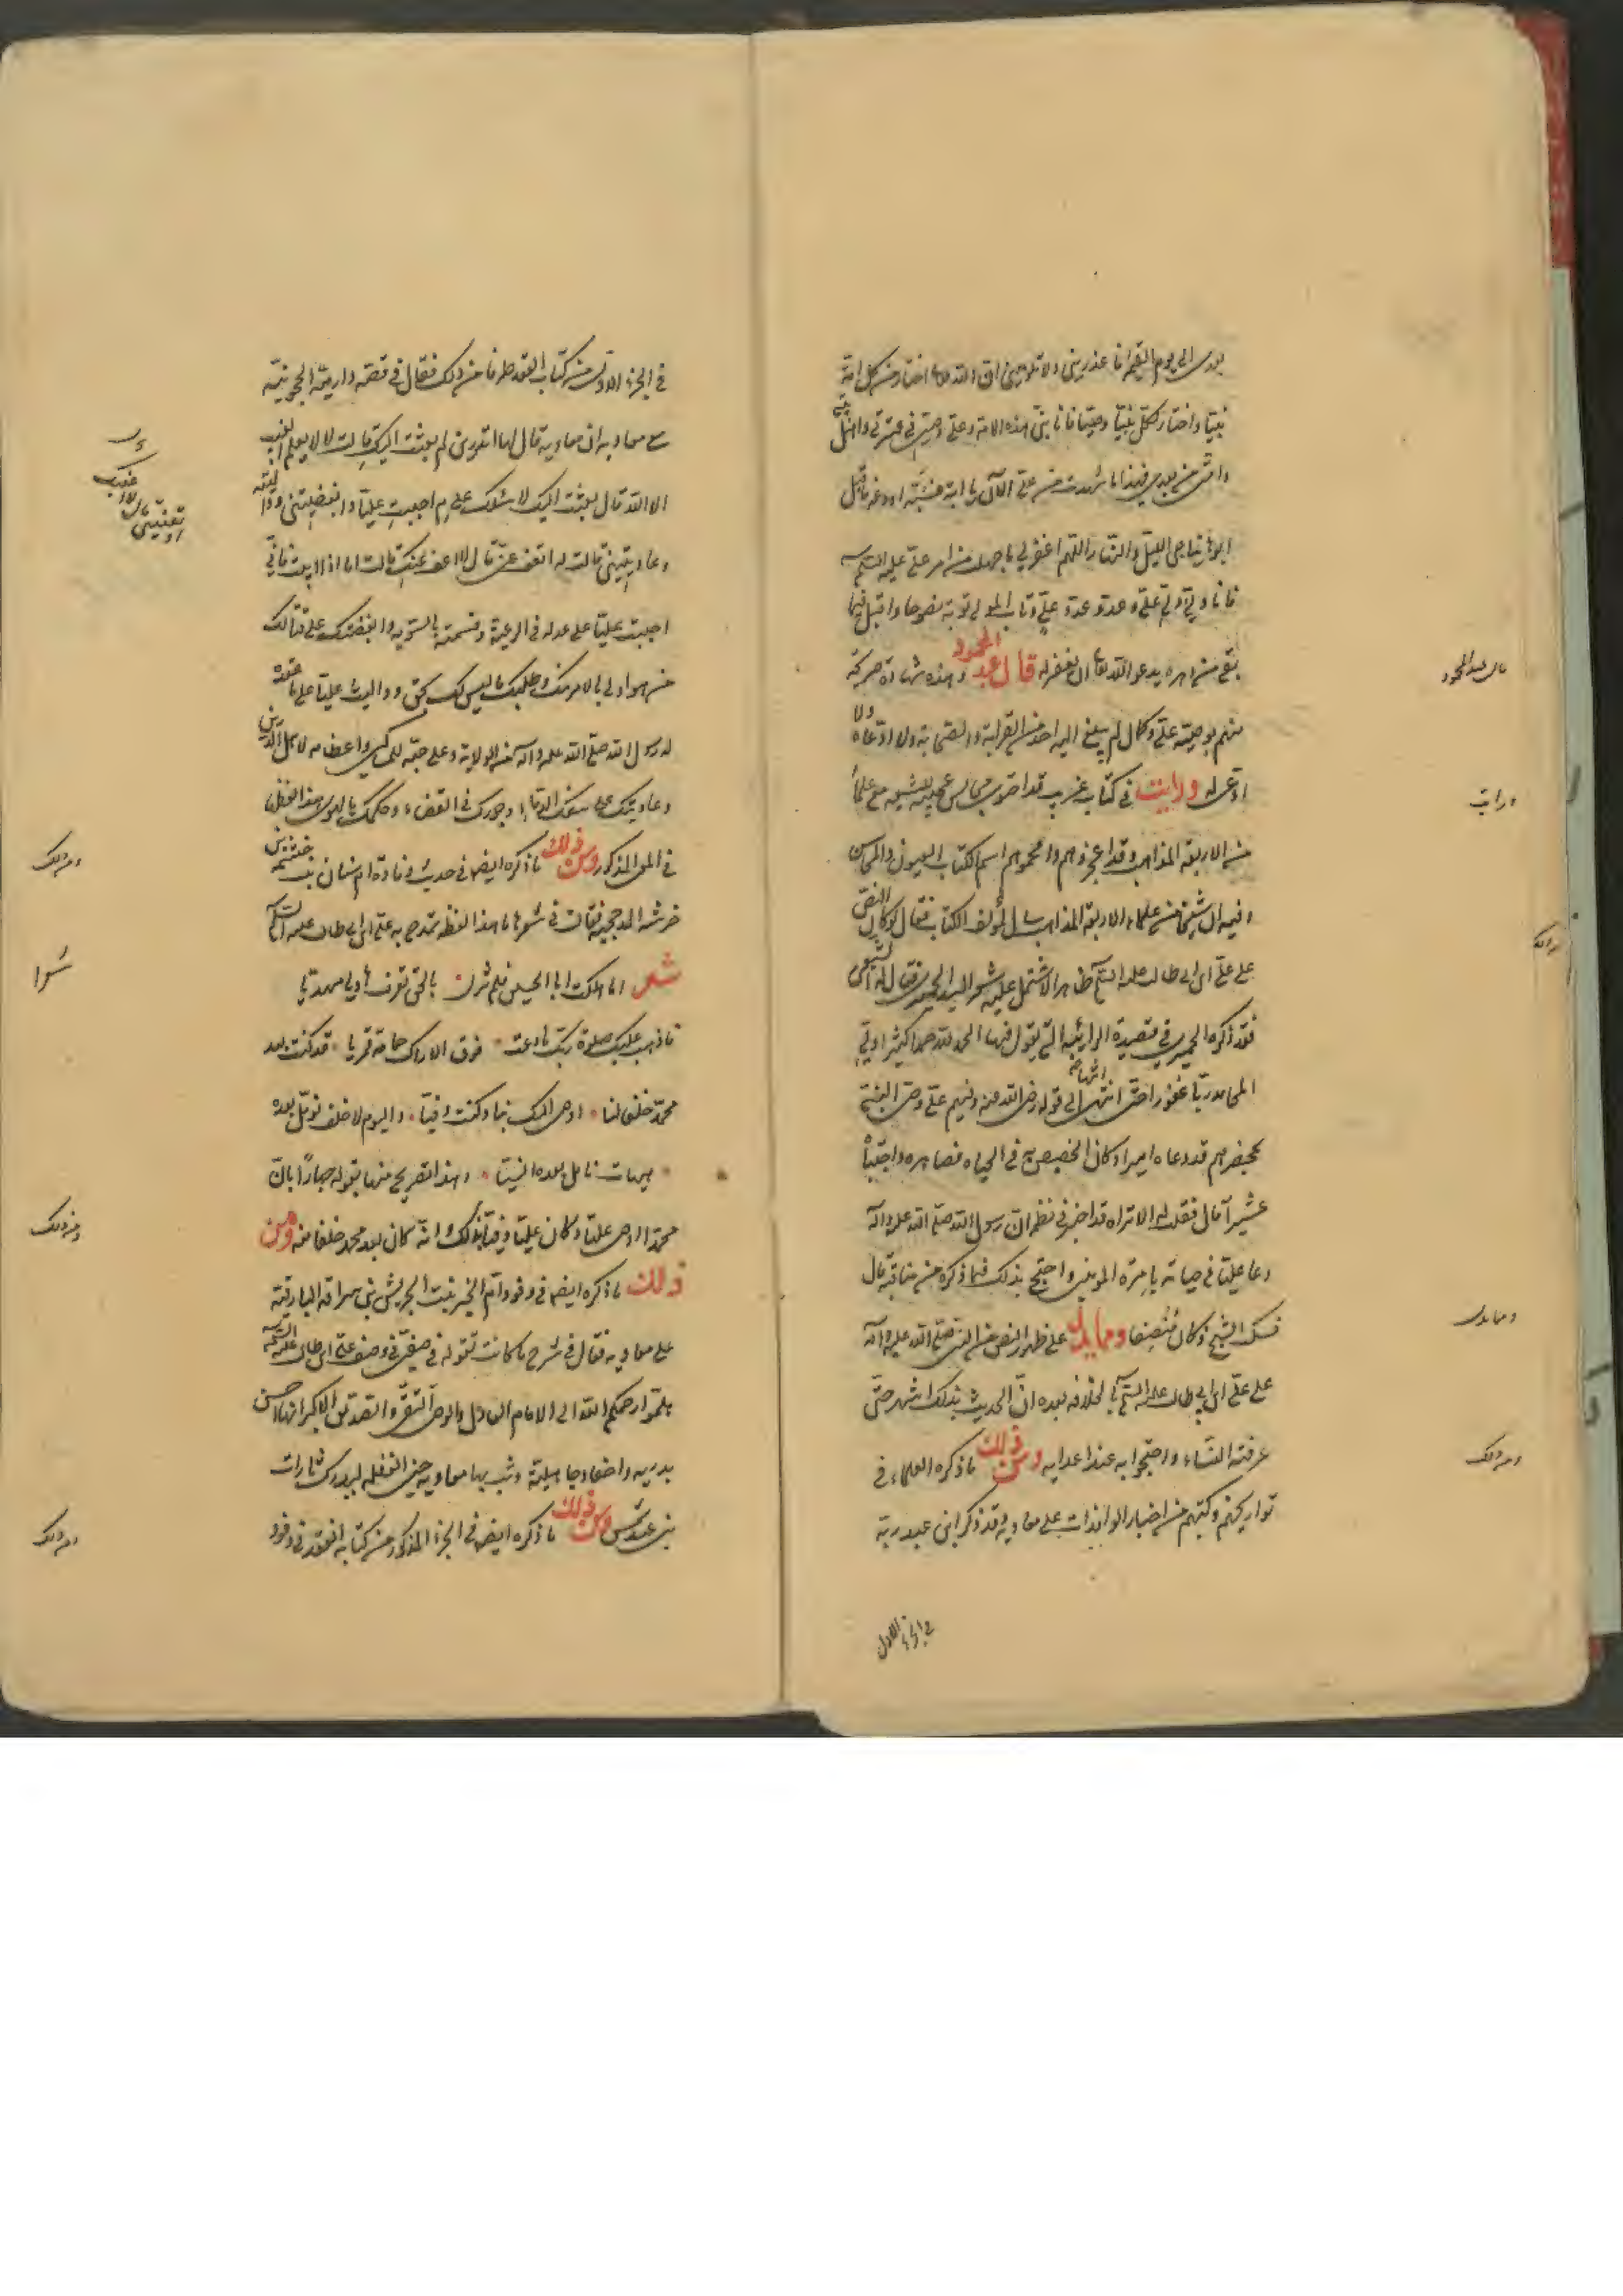 بعدى الى يوم القيمة فاعذرينى ولا تلومينى ان الله تعالى اختار من كل امة
نبيا واختار لكل نبى وصيا فانا نبى هذه الامة وعلى وصيى فى عترتى واهل بيتى
وامتى من بعدى فهذا ما شهدت من على الآن يا ابة فسبه او دعه فاقبل
ابوها يناجى الليل والنهار اللهم اغفر لى ما جهلت من امر على عليه السلم
فانا ولى ولى على وعدو عدو على وتاب المولى توبة نصوحا واقبل فيما
بقى من دهره يدعو الله تعالى ان يغفر له قال عبد المحمود وهذه شهادة صريحة
منهم بوصية على وكمال لم يبلغ اليه احد من القرابة والصحابة ولا ادعاه ولا
ادعى له ورايت فى كتاب غريب قد احتوى مجالس عجيبة للشيعة مع علماء
من الاربعة المذاهب وقد اعجزوهم وافحموهم اسم الكتاب العيون والمحاسن
وفيه ان شيخا من علماء الاربعة المذاهب سال مؤلف الكتاب فقال لو كان النص
على على ابن ابى طالب عليه السلم ظاهرا لاشتمل عليه شعر السيد الحميرى فقال له الشيعى
فقد ذكره الحميرى فى قصيدته الرائية التى يقول فيها الحمد لله حمدا كثيرا ولى
المحامد ربا غفورا حتى انتهى الى قوله رضى الله عنه وفيهم على وصى النبى
بمحضرهم قد دعاه اميرا وكان الخصيص به فى الحياة فصاهره واجتباه
عشيرا قال فقلت له الا تراه قد اخبر فى نظمه ان رسول الله صلى الله عليه وآله
دعا عليا فى حياته بامرة المؤمنين واحتج بذلك فيما ذكره من مناقبه قال
فسكت الشيخ وكان منصفا ومما يدل على ظهور النص من النبى صلى الله عليه وآله
على على ابن ابى طالب عليه السلم بالخلافة بعده ان الحديث بذلك اشتهر حتى
عرفته النساء واحتجوا به عند اعدائه ومن ذلك ما ذكره العلماء فى
تواريخهم وكتبهم من اخبار الوافدات على معاوية وقد ذكر ابن عبد ربه
فى الجزء الاول
قال عبد المحمود
ورايت
ومما يدل
ومن ذلك
فى الجزء الاول من كتاب العقد طرفا من ذلك فقال فى قصة دارمية الحجونية
مع معاوية ان معاوية قال لها اتدرين لم بعثت اليك قالت لا لا يعلم الغيب
الا الله قال بعثت اليك لاسئلك على م احببت عليا وابغضتنى وواليته
وعاديتنى قالت له اتعفى عنى قال لا اعفو عنك قالت اما اذا ابيت فانى
احببت عليا على عدله فى الرعية وقسمته بالسوية وابغضتك على قتالك
من هو اولى بالامر منك وطلبك ما ليس لك بحق وواليت عليا على ما عقده
له رسول الله صلى الله عليه وآله من الولاية وعلى حبه للمساكين واعظامه لاهل الدين
وعاديتك على سفك الدماء وجورك فى القضاء وحكمك بالهوى هذا لفظها
فى المعنى المذكور ومن ذلك ما ذكره ايضا فى حديث وفادة ام سنان بنت خيثمة بن
خرشة المذحجية فقالت فى شعرها ما هذا لفظه تمدح به على ابن ابى طالب عليه السلم
شعر اما هلكت ابا الحسين فلم تزل بالحق تعرف هاديا مهديا
فاذهب عليك صلوة ربك ما دعت فوق الاراك حمامة قمريا قد كنت بعد
محمد خلفا لنا اوصى اليك بنا وكنت وفيا واليوم لا خلف نؤمل بعده
هيهات نامل بعده انسيا وهذا تصريح منها بقوله جهارا بان
محمدا اوصى عليا وكان عليا وفيا بذلك وانه كان بعد محمد خلفا منه ومن
ذلك ما ذكره ايضا فى وفود ام الخير بنت الحريش بن سراقة البارقية
على معاوية فقال فى شرح ما كانت تقوله فى صفين فى وصف على ابن ابى طالب عليه السلم
هلموا رحمكم الله الى الامام العادل والوصى التقى والصديق الاكبر انها احن
بدرية واحقاد جاهلية وثب بها معاوية حين الغفلة ليدرك ثارات
بنى عبد شمس ومن ذلك ما ذكره ايضا فى الجزء المذكور من كتابه العقد فى وفود
ومن ذلك
شعرا
ومن ذلك
ومن ذلك